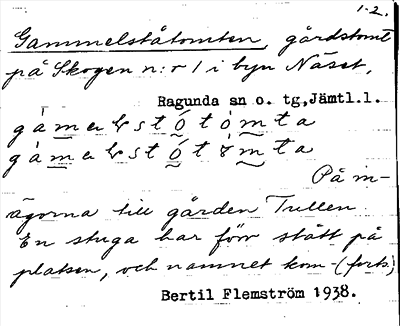 1-2.
Gammelståtomten, gårdstomt
på Skogen n:r 1 i byn Näset,
Ragunda sn o. tg, Jämtl.l.
På in-
ägorna till gården Trullen.
En stuga har förr stått på
platsen, och namnet kom- (forts.)
Bertil Flemström 1938.